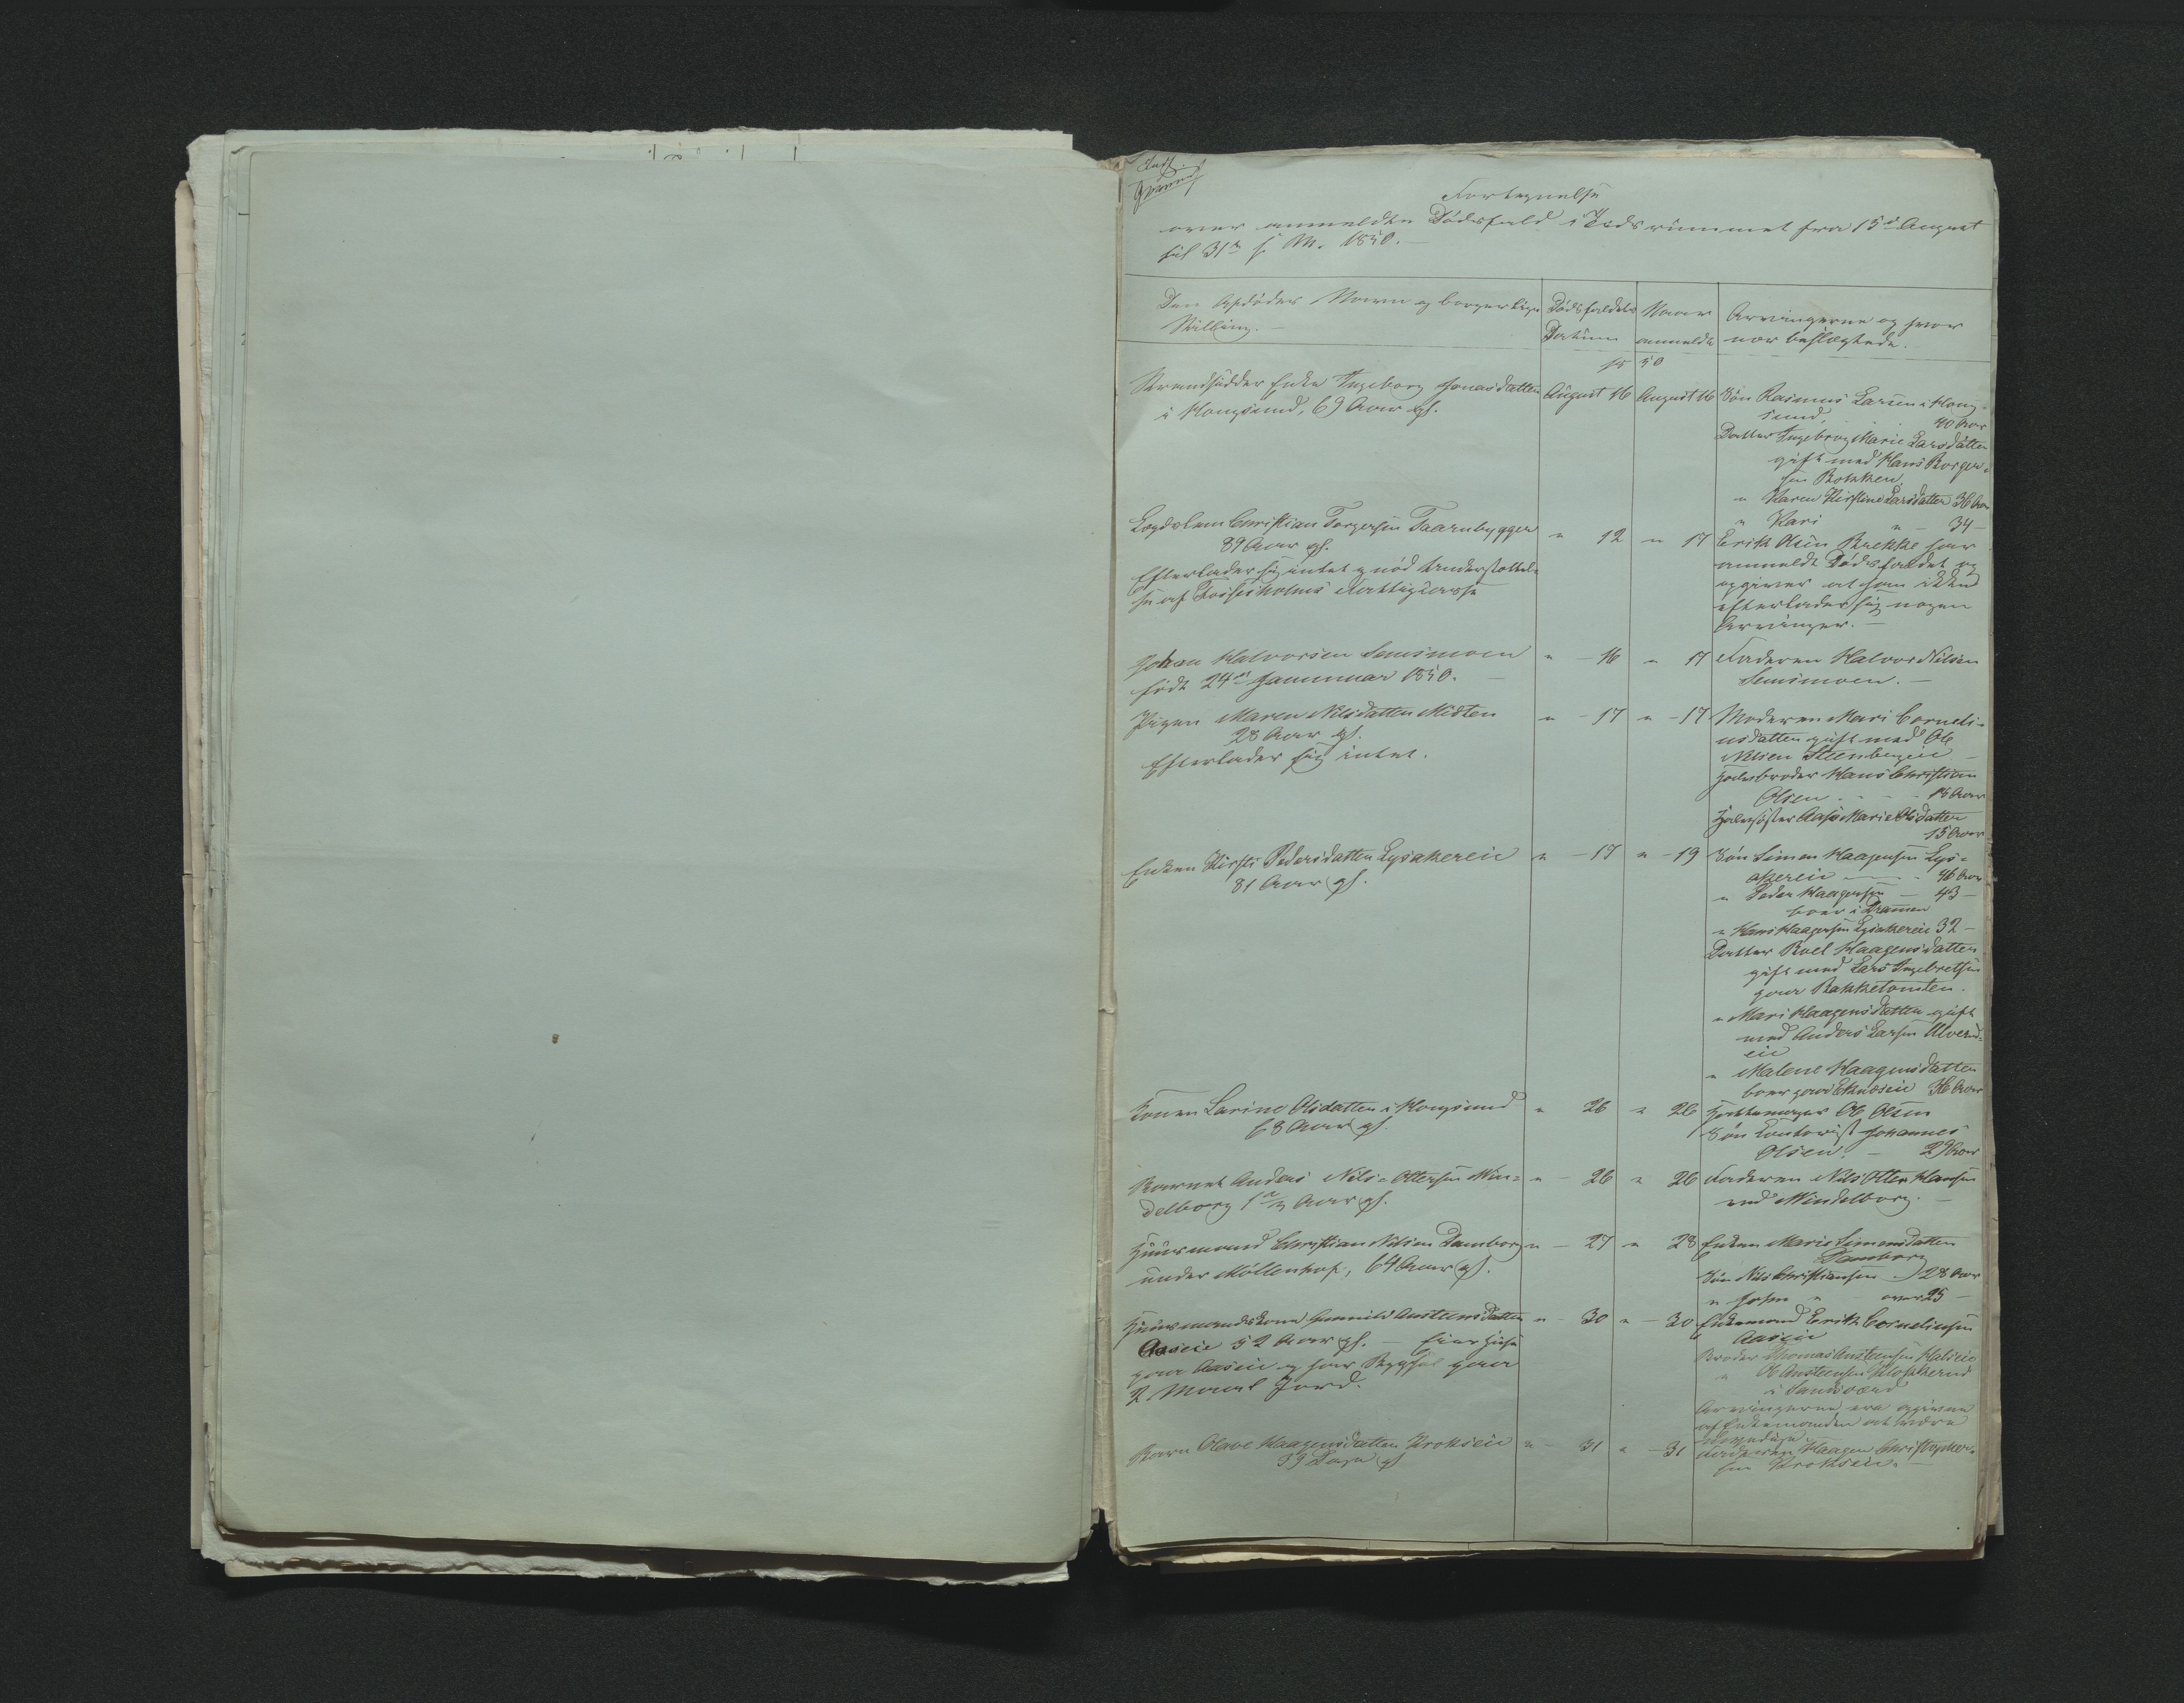 Fortegnelse
over anmeldte Dödsfald i Tidsrummet fra 15de August
til 31te s. M. 1850.
Den Afdødes Navn og borgerlige
Stilling.
Dödsfaldets
Datum
Naar
anmeldt
Arvingerne og hvor
nær beslægtede.
18 50
Strandsidder Enke Ingeborg Jonasdatter
i Hougsund, 69 Aar gl.
August 16
August 16
Sön Rasmus Larsen i Houg-
sund, 40 Aar
Datter Ingeborg Marie Larsdatter
gift med Hans Borger-
sen Bakken
" Karen Kirstine Larsdatter 36 Aar
" Kari " - 34 -
Lægdslem Christian Torgersen Taarnbygger
89 Aar gl.
Efterlader sig intet og nöd Understøttel-
se af Fossesholms Fattigcasse
" 12
" 17
Erik Olsen Brekke har
anmeldt Dödsfaldet og
opgiver at han ikke
efterlader sig nogen
Arvinger. -
Johan Halvorsen Semsmoen
født 24de Januar 1850. -
" - 16
" 17
Faderen Halvor Nilsen
Semsmoen. -
Pigen Maren Nilsdatter Midten
28 Aar gl.
Efterlader sig intet.
" - 17
" - 17
Moderen Mari Corneli-
usdatter gift med Ole
Nilsen Steenbergeie
Halvbroder Hans Christian
Olsen - - - 18 Aar
Halvsöster Aase Marie Olsdatter
15 Aar
Enken Kirsti Pedersdatter Lysakereie
81 Aar gl.
" - 17
" - 19
Sön Simen Haagensen Lys-
akereie - 46 Aar
" Peder Haagensen - 43 -
boer i Drammen
" Hans Haagensen Lysakereie 32 -
Datter Roel Haagensdatter
gift med Lars Ingebretsen
paa Bakketomten.
" Mari Haagensdatter gift
med Anders Larsen Ulverud-
eie
" Malene Haagensdatter
boer paa 36 Aar
Konen Larine Olsdatter i Hougsund
68 Aar gl.
" 26
" 26
Enkemand Ole Olsen
Sön Contorist Johannes
Olsen - 29 Aar
Barnet Anders Nils-Ottersen Min-
delborg 1 Aar gl.
" - 26
" 26
Faderen Nils Otter Hansen
ved Mindelborg. -
Huusmand Christian Nilsen Damborg
under Möllenhof, 64 Aar gl.
" - 27
" 28
Enken Maria Simensdatter
Damborg
Sön Nils Christiansen - 28 Aar
" John " over 25 -
Huusmandskone Gunnild Austeensdatter
Aaseie 52 Aar gl. - Eier Huse
paa Aaseie og har Bygsel paa
2 Maal Jord.
" - 30
" - 30
Enkemand Erik Corneliusen
Aaseie
Broder Thomas Austeensen
" Ole Austeensen
i Sandsværd
Arvingerne ere opgivne
af Enkemanden at være
myndige.
Barn Olave Haagensdatter Krokseie
39 Dage gl
" - 31
" - 31
Faderen Haagen Christopher-
sen Krokseie. -